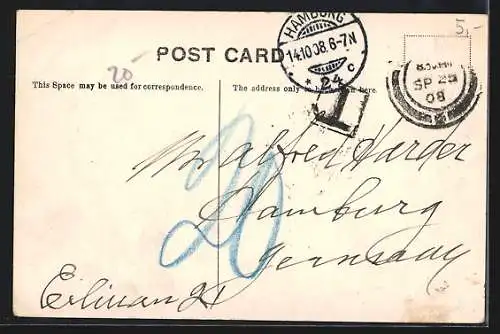 5,-
HAMBURG
14.10.08.6-7N
* 24 c
POST CARD
20-
SP 25
08
This Space may be used for correspondence.
The address only to be here.
T
20
Mr Alfred Harder
Hamburg
Germany